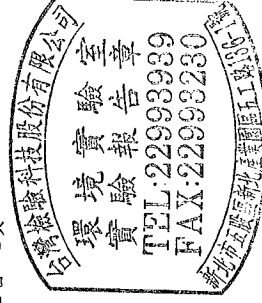 台灣檢驗科技股份有限公司
環境實驗室
實驗報告章
TEL:22993939
FAX:22993230
新北市五股區新北產業園區五工路136-1號